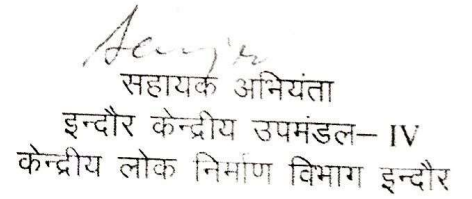 सहायक अभियंता
इन्दौर केन्द्रीय उपमंडल– IV
केन्द्रीय लोक निर्माण विभाग इन्दौर